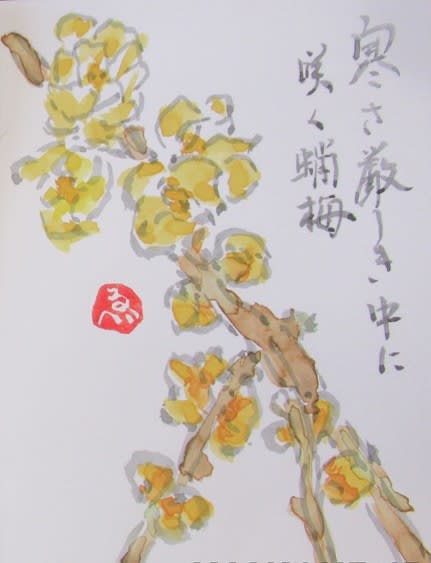 寒さ厳しき中に
咲く蝋梅